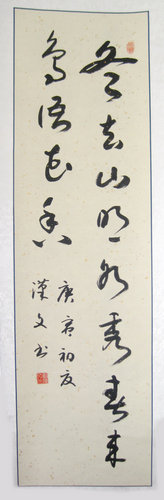 冬去山明水秀春来
鸟语花香
庚寅初夏
漢文书